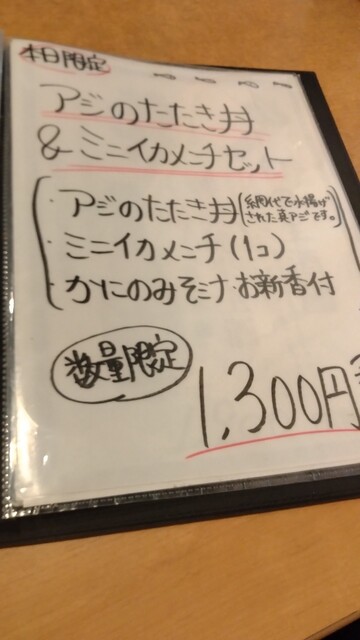 本日限定
アジのたたき丼
&ミニイカメンチセット
・アジのたたき丼(網代で水揚げ
された真アジです。)
・ミニイカメンチ(1コ)
・かにのみそ汁・お新香付
数量限定
1,300円